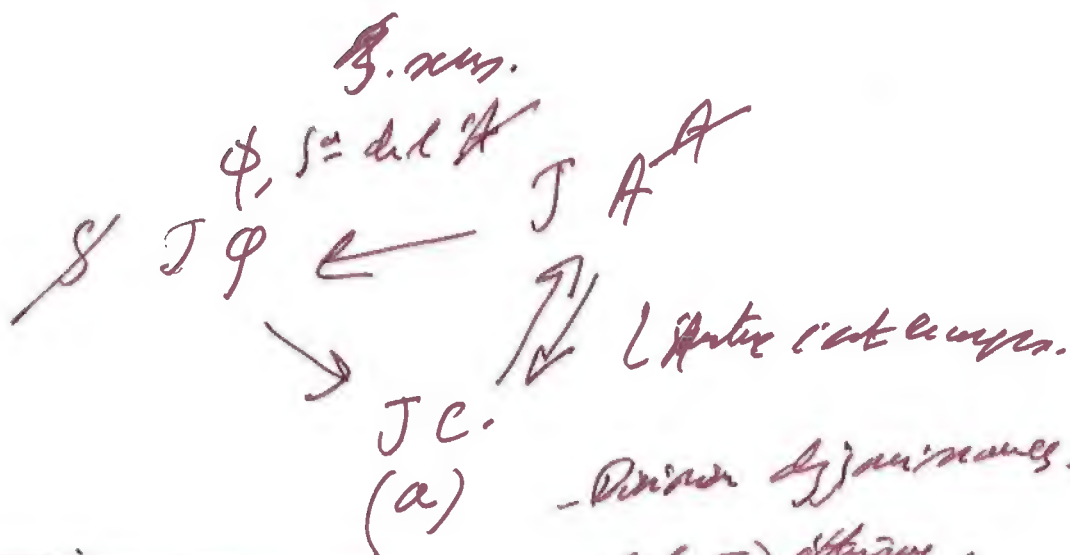 J. sens.
Φ, Sᵃ de l'Ⱥ
J A Ⱥ
$ J φ
L'Autre c'est le corps.
J C.
(a)
- Division des jouissances.